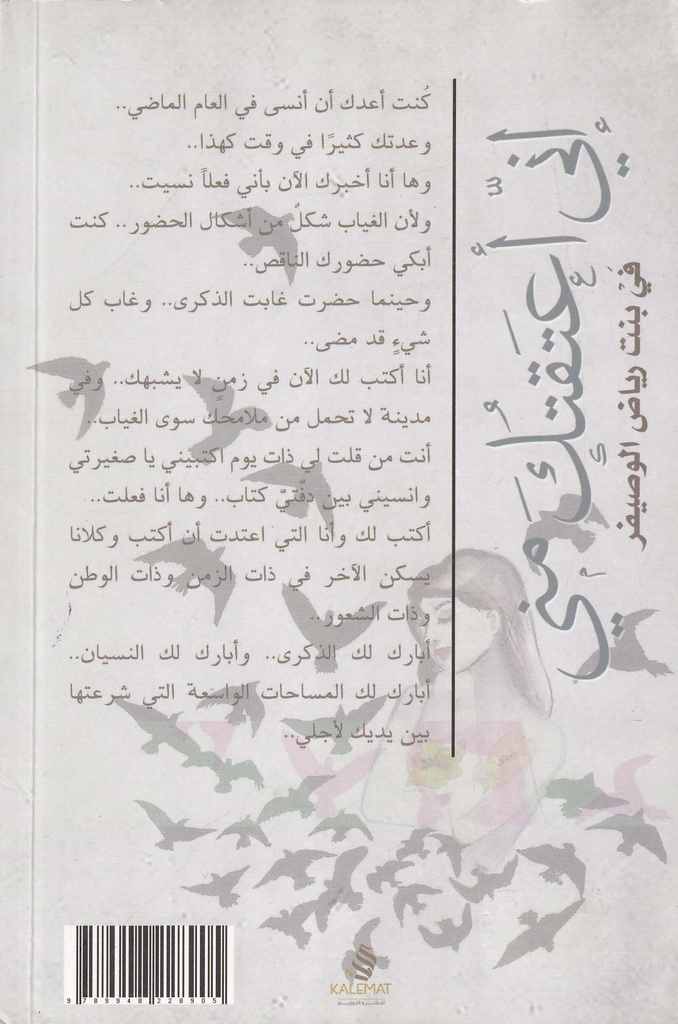 إنيّ أعتقتُكَ مني
فيْ بنت رياض الوصيفر
كُنت أعدك أن أنسى في العام الماضي..
وعدتك كثيرًا في وقت كهذا..
وها أنا أخبرك الآن بأني فعلاً نسيت..
ولأن الغياب شكلٌ من أشكال الحضور.. كنت
أبكي حضورك الناقص..
وحينما حضرت غابت الذكرى.. وغاب كل
شيءٍ قد مضى..
أنا أكتب لك الآن في زمنٍ لا يشبهك.. وفي
مدينة لا تحمل من ملامحك سوى الغياب..
أنت من قلت لي ذات يوم اكتبيني يا صغيرتي
وانسيني بين دفّتيّ كتاب.. وها أنا فعلت..
أكتب لك وأنا التي اعتدت أن أكتب وكلانا
يسكن الآخر في ذات الزمن وذات الوطن
وذات الشعور..
أبارك لك الذكرى.. وأبارك لك النسيان..
أبارك لك المساحات الواسعة التي شرعتها
بين يديك لأجلي..
9789948228905
KALEMAT
للنشر والتوزيع